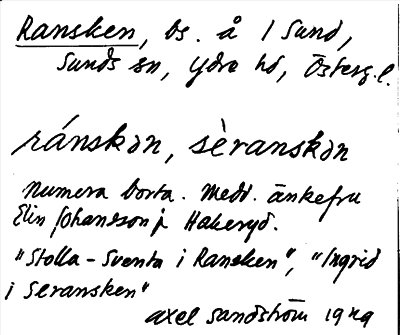 Ransken, bs. å 1 Sund,
Sunds sn, Ydre hd, Österg.l.
ránskən, sèranskən
numera borta. Medd. änkefru
Elin Johansson på Hakeryd.
"Stolla-Sventa i Ransken", "Ingrid
i Seransken"
Axel Sandström 19